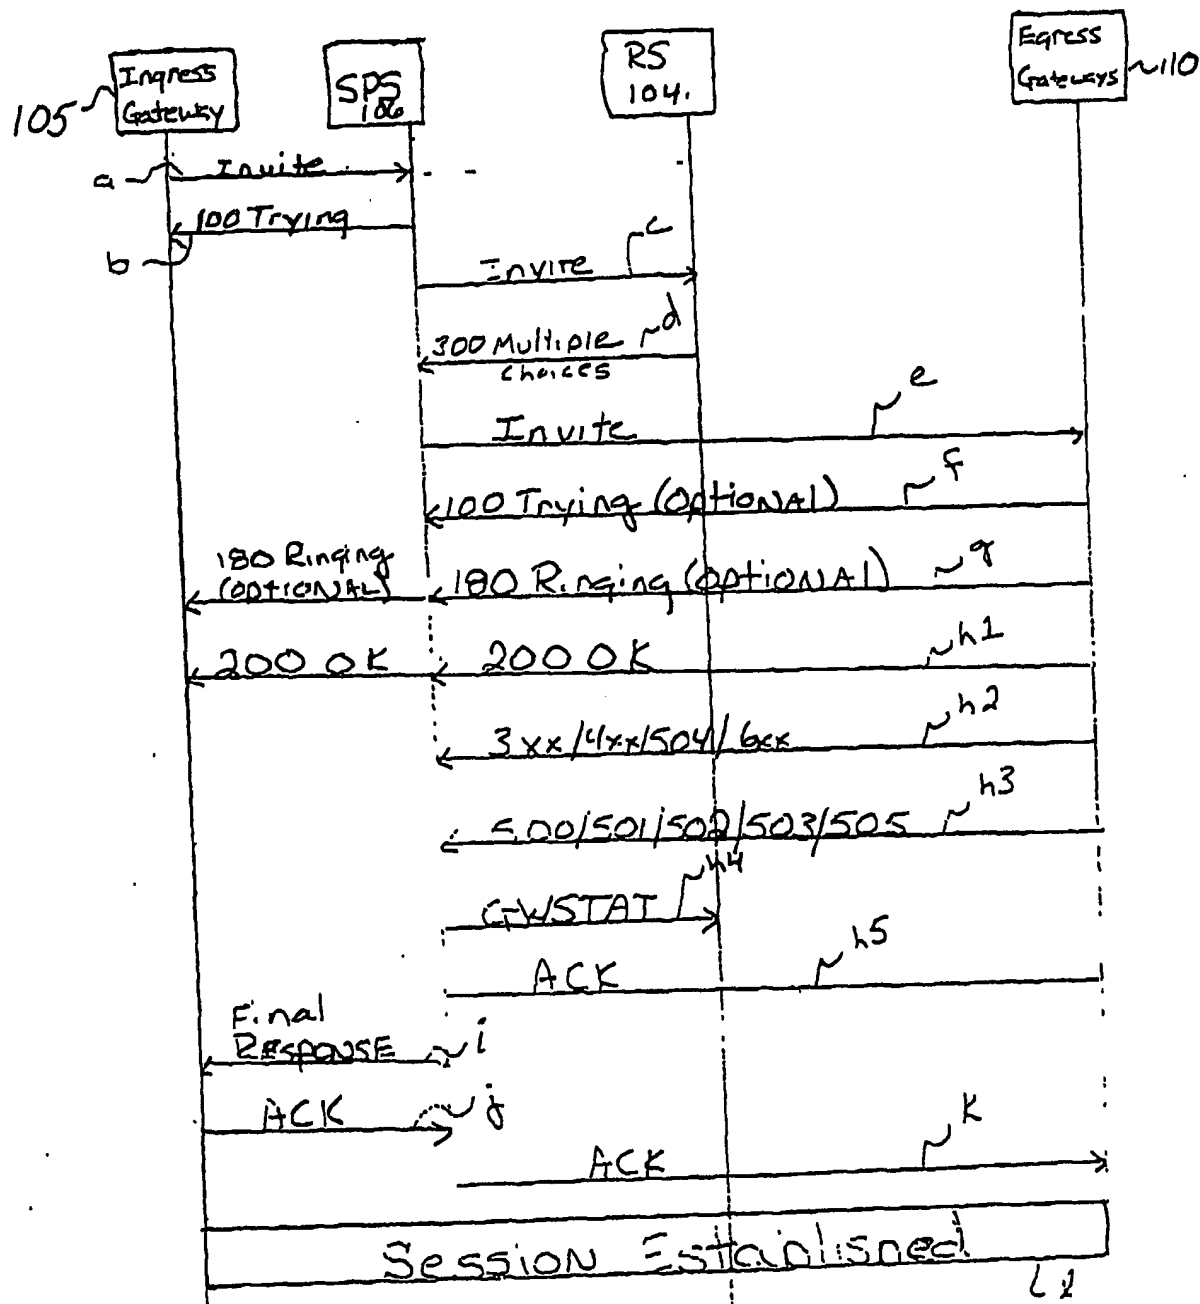 Ingress
Gateway
105
SPS
106
RS
104.
Egress
Gateways
110
a
Invite
100 Trying
b
c
Invite
d
300 Multiple
choices
e
Invite
f
100 Trying (OPTIONAL)
180 Ringing
(OPTIONAL)
g
180 Ringing (OPTIONAL)
h1
200 OK
200 OK
h2
3xx/4xx/504/6xx
h3
500/501/502/503/505
h4
GWSTAT
h5
ACK
Final
RESPONSE
i
ACK
j
k
ACK
Session Established